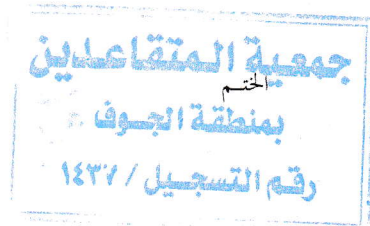 جمعية المتقاعدين
الختم
بمنطقة الجوف
رقم التسجيل / ١٤٣٧